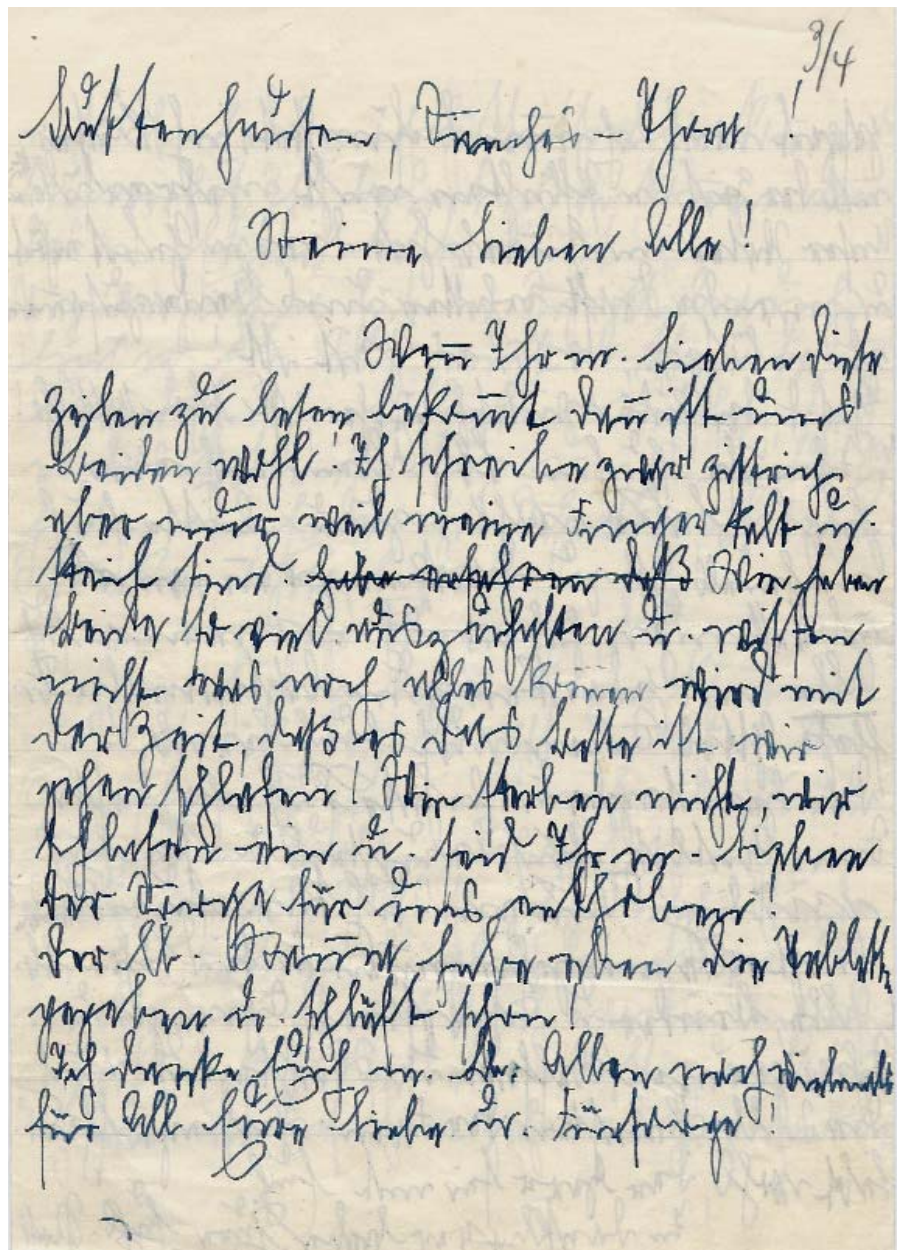 3/4
Luftenhausen, Thorn!
Meine Lieben Alle!
Wen̅ Ihr m. Lieben diese
Zeilen zu lesen bekom̅t dan̅ ist uns
beiden wohl! Ich schreibe zwar zittrich,
aber nur weil meine Finger kalt u.
steif sind. habe erfahren daß Wir haben
beide so viel auszuhalten u. wissen
nicht was noch alles kom̅en wird mit
der Zeit, daß es das beste ist wir
gehen schlafen! Wir sterben nicht, wir
schlafen ein u. seid Ihr m. Lieben
der Sorge für uns enthoben!
der lb. habe eben die Tablette
gegeben u. schläft schon!
Ich danke Euch m. lb. Allen noch vielmals
für All Eure Liebe u. Fürsorge!